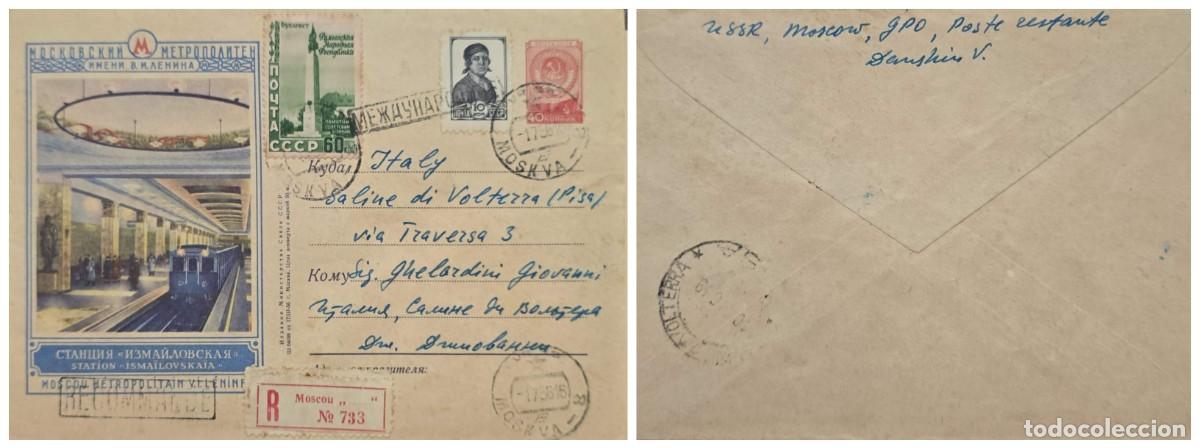 МОСКОВСКИЙ М МЕТРОПОЛИТЕН
ИМЕНИ В.И.ЛЕНИНА
БУХАРЕСТ
Румынская
Народная
Республика
ПОЧТА
СССР 60
10
40 КОПЕЕК
МЕЖДУНАРО
MOSKVA
Куда
Italy
Saline di Volterra (Pisa)
via Traversa 3
Кому Sig. Ghelardini Giovanni
Италия, Салине ди Вольтера
Джованни
СТАНЦИЯ «ИЗМАЙЛОВСКАЯ»
STATION «ISMAÏLOVSKAÏA»
MOSCOU METROPOLITAIN V.I.LENINE
RECOMMANDE
R Moscou „ “
№ 733
MOSKVA
USSR, Moscow, GPO, Poste restante
Danshin V.
VOLTERRA
todocoleccion
todocoleccion.net